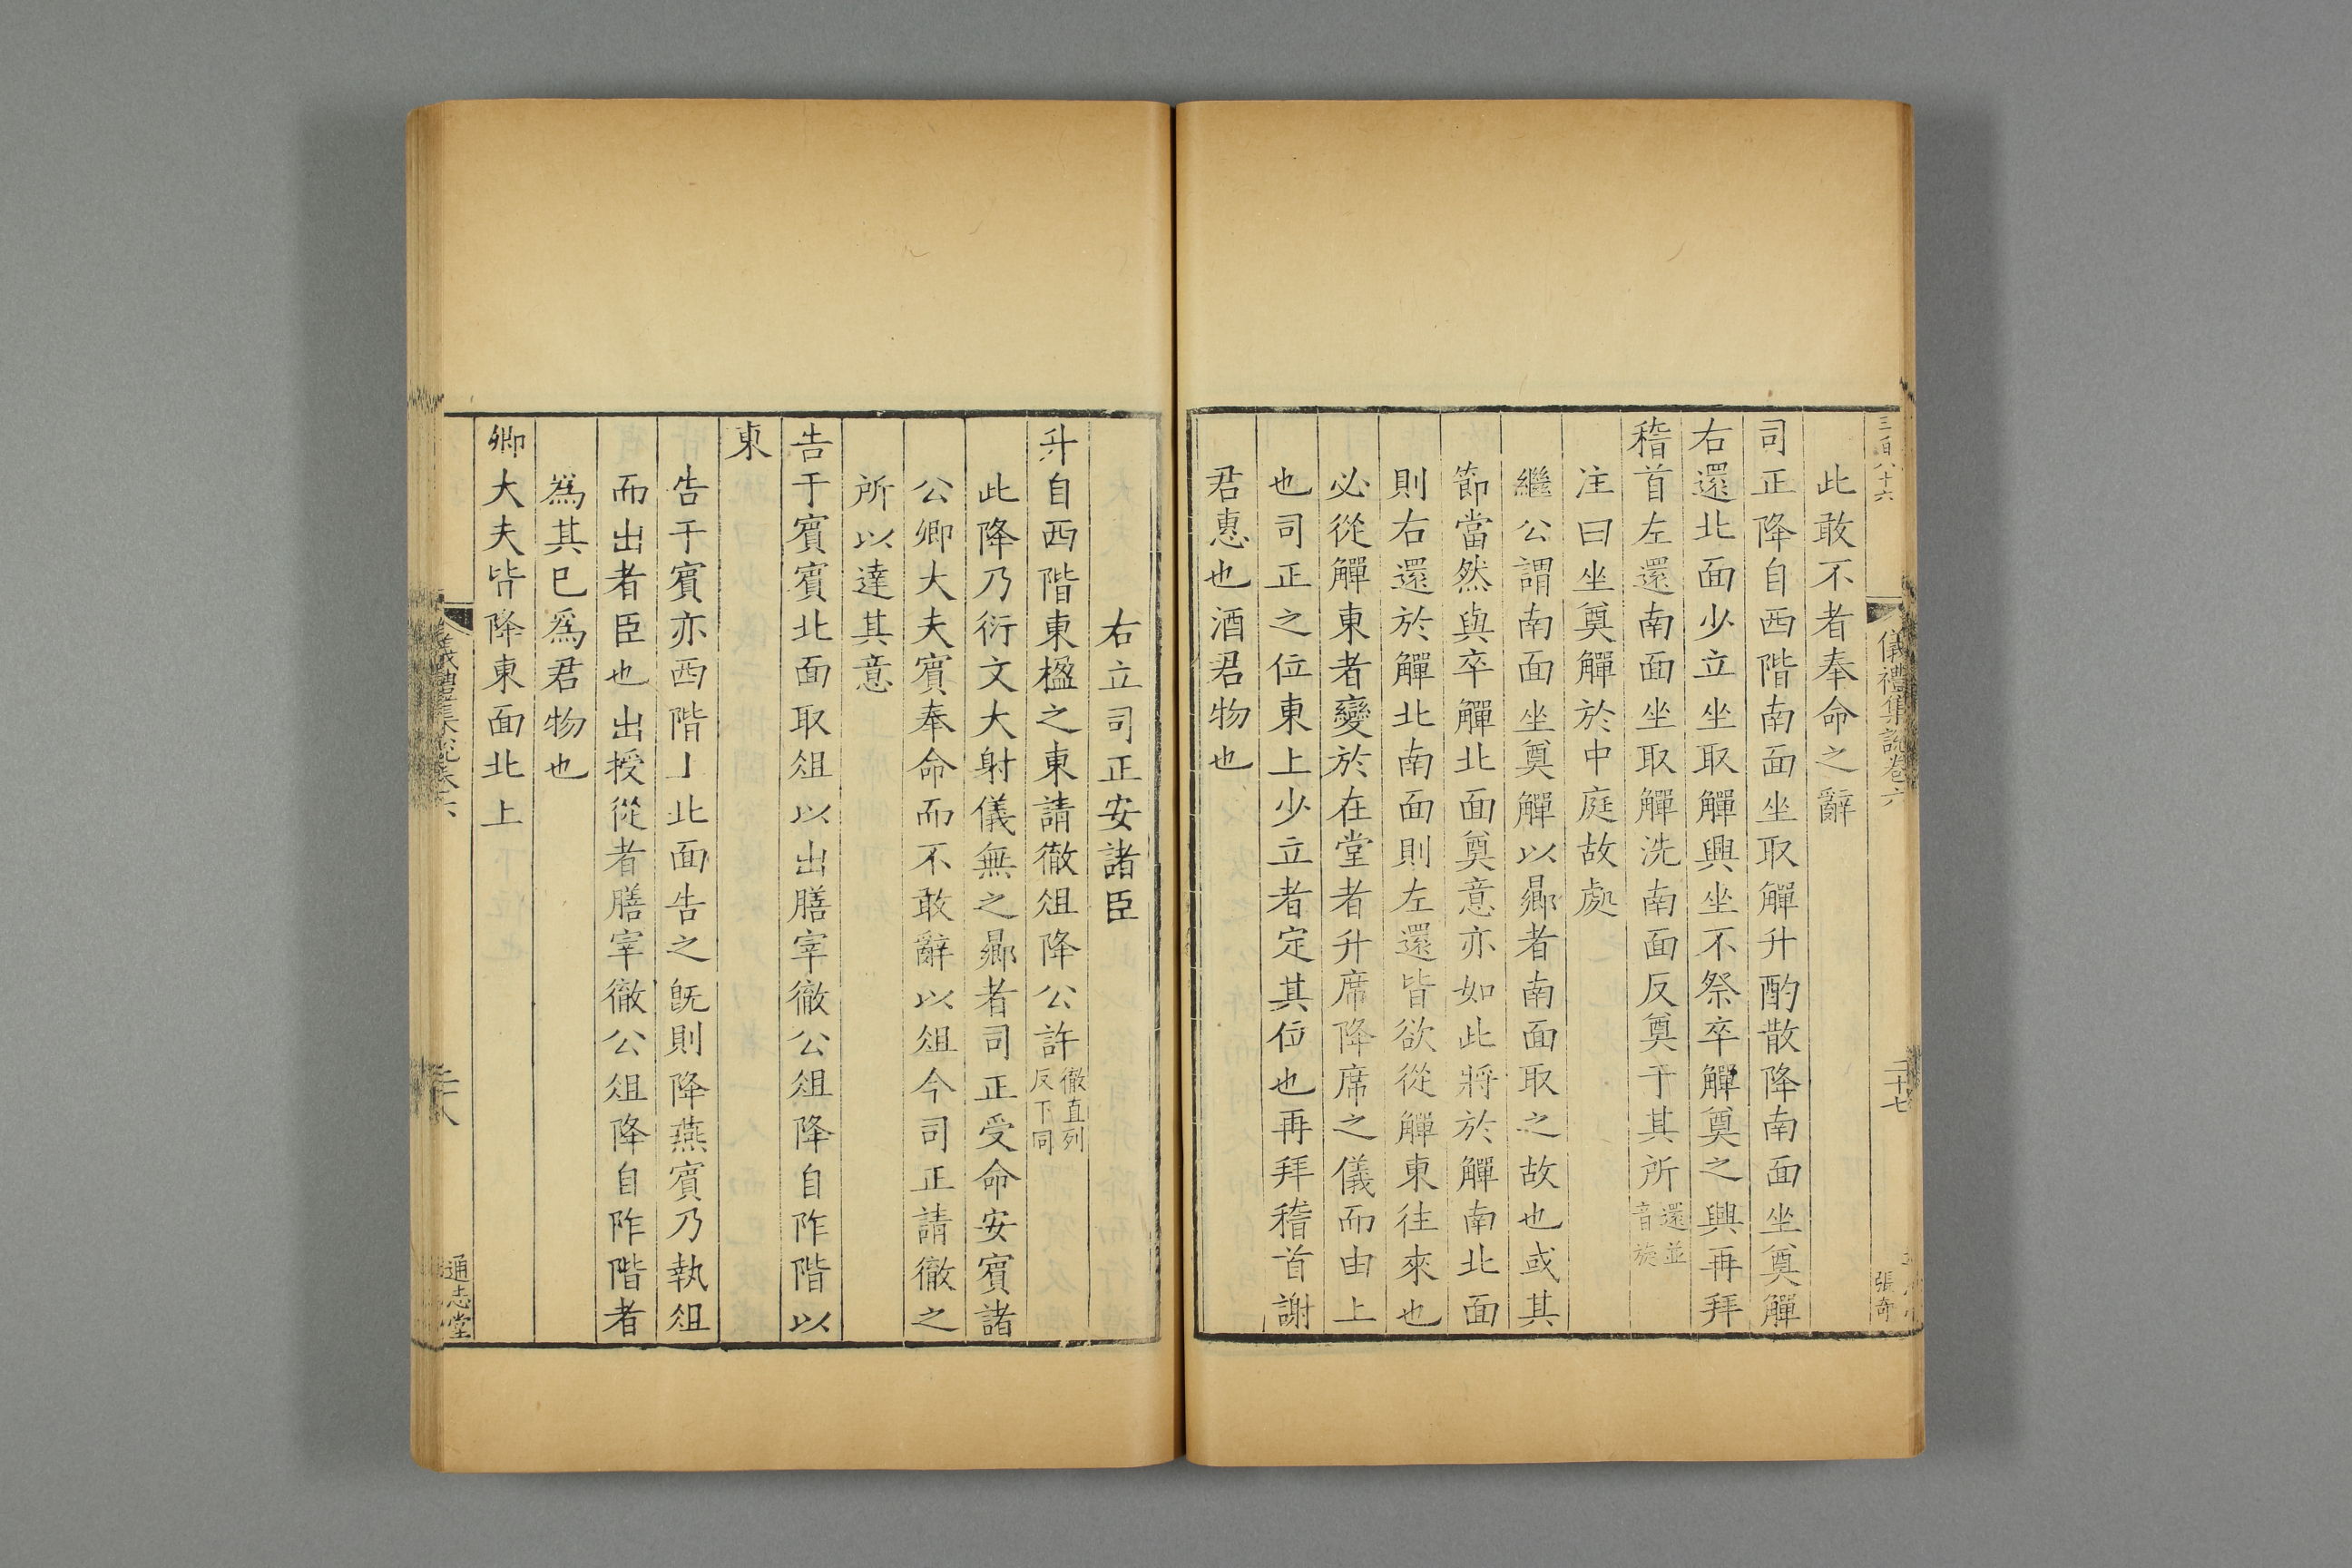 三百八十六
儀禮集說卷六
二十七
張奇
此敢不者奉命之辭
司正降自西階南面坐取觶升酌散降南面坐奠觶
右還北面少立坐取觶興坐不祭卒觶奠之興再拜
稽首左還南面坐取觶洗南面反奠于其所還並音旋
注曰坐奠觶於中庭故處
繼公謂南面坐奠觶以曏者南面取之故也或其
節當然與卒觶北面奠意亦如此將於觶南北面
則右還於觶北南面則左還皆欲從觶東往來也
必從觶東者變於在堂者升席降席之儀而由上
也司正之位東上少立者定其位也再拜稽首謝
君惠也酒君物也
右立司正安諸臣
升自西階東楹之東請徹俎降公許徹直列反下同
此降乃衍文大射儀無之曏者司正受命安賓諸
公卿大夫賓奉命而不敢辭以俎今司正請徹之
所以達其意
告于賓賓北面取俎以出膳宰徹公俎降自阼階以
東
告于賓亦西階上北面告之旣則降燕賓乃執俎
而出者臣也出授從者膳宰徹公俎降自阼階者
爲其已爲君物也
卿大夫皆降東面北上
儀禮集說卷六
二十八
通志堂